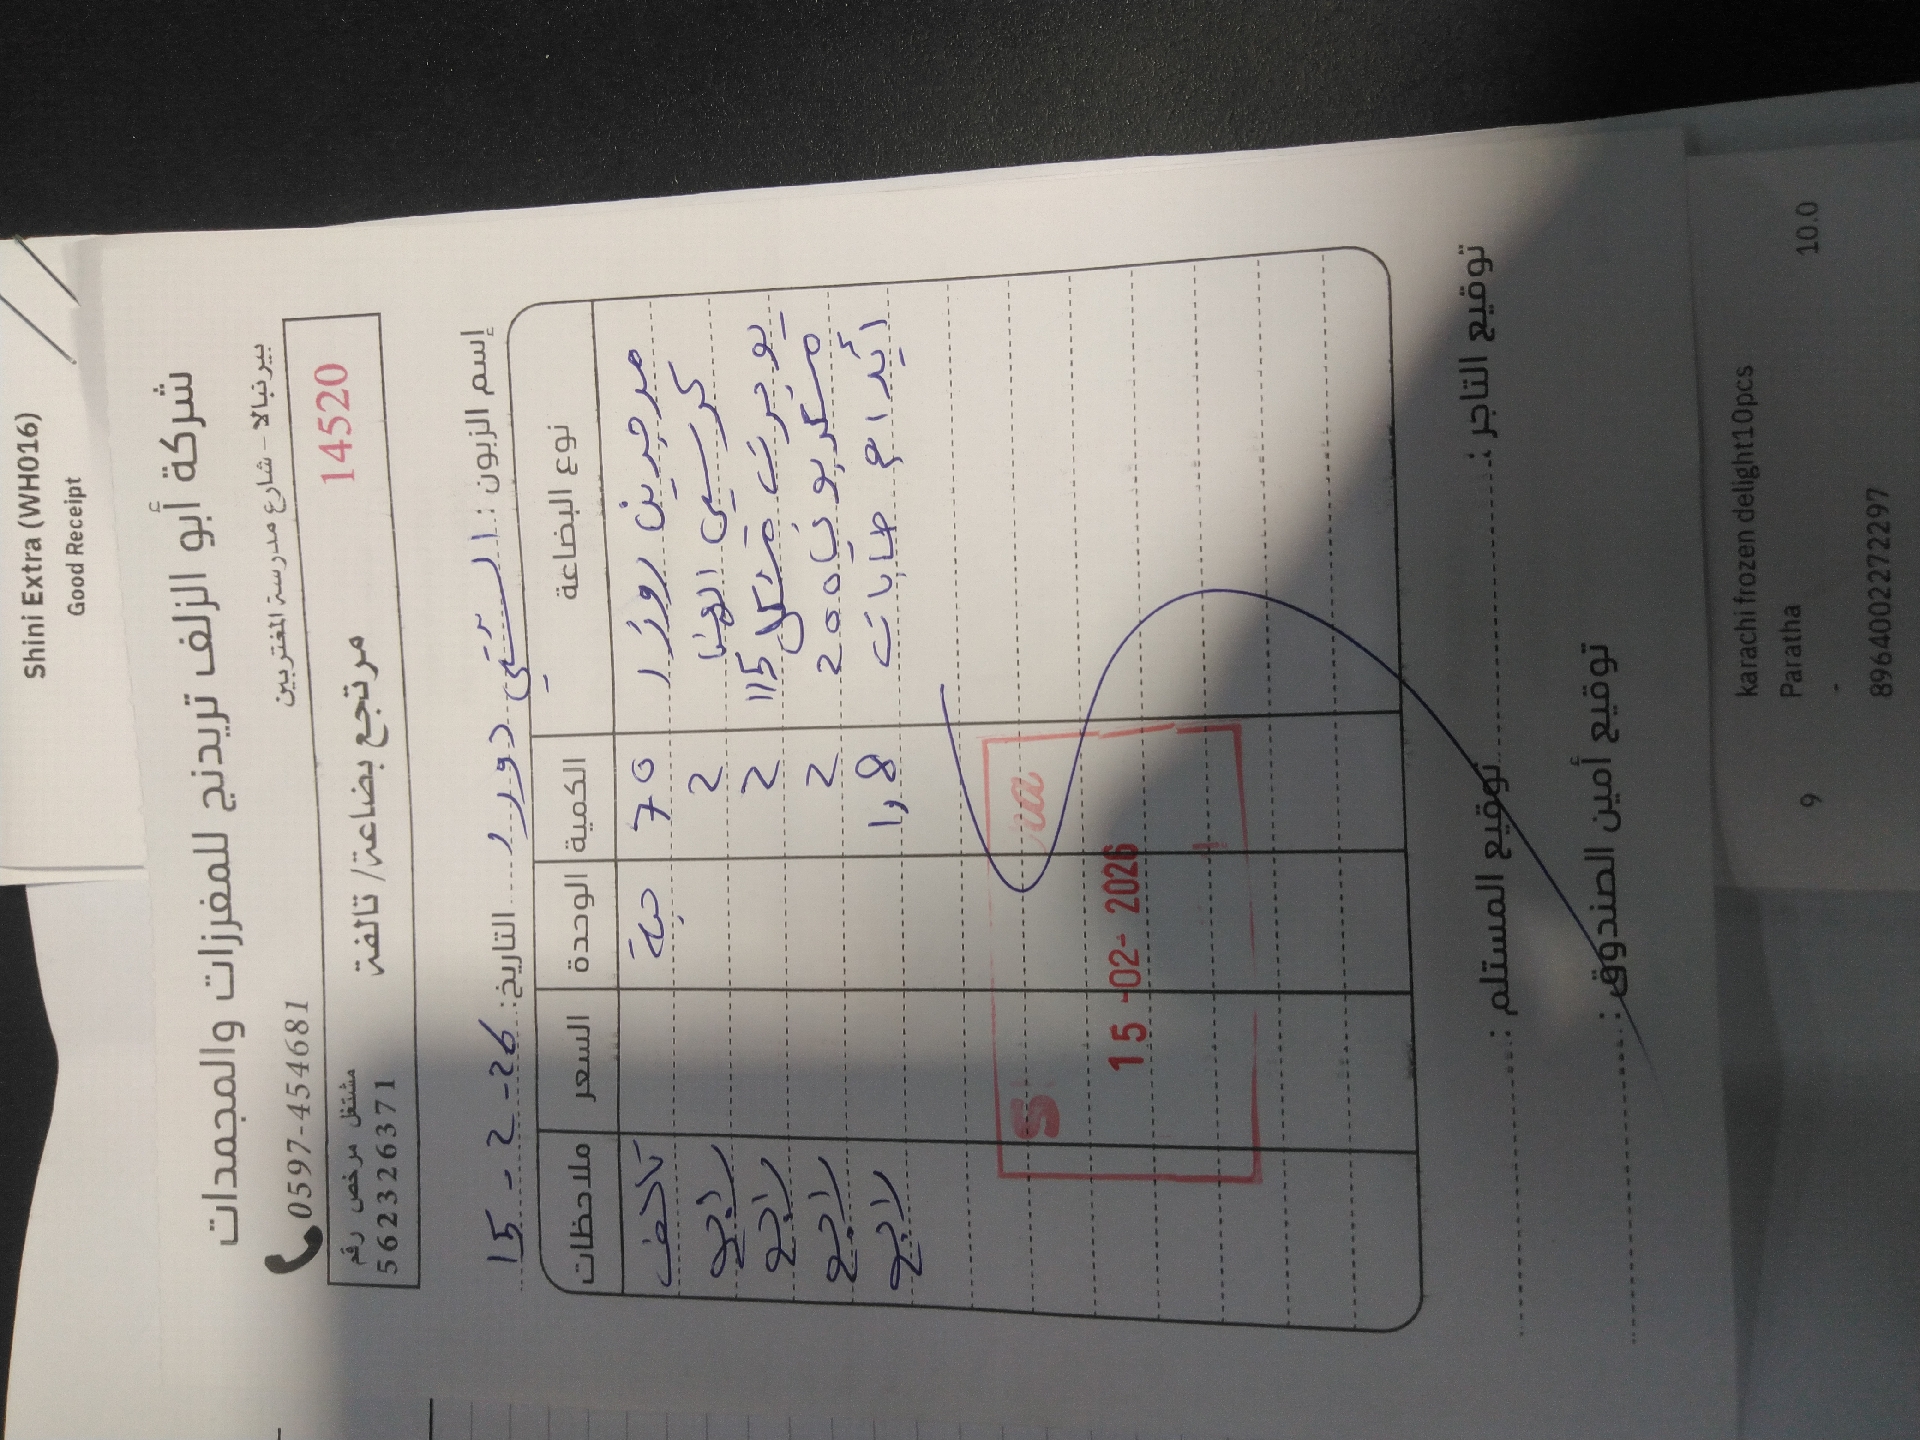 Shini Extra (WH016)
Good Receipt
شركة أبو الزلف تريدنج للمفرزات والمجمدات
بيرنبالا - شارع مدرسة المغتربين
0597-454681
14520
مرتجع بضاعة/ تالفة
مشتغل مرخص رقم
562326371
إسم الزبون : الشني دورا
التاريخ: 15-2-26
نوع البضاعة الكمية الوحدة السعر ملاحظات
مرجرين روزا 70 حبة تالف
كرسبي الهنا 2 راجع
يوجرت مشكل 115 2 راجع
200 2 راجع
أقدام 1,8 راجع
S
15-02-2026
توقيع التاجر :
توقيع المستلم :
توقيع أمين الصندوق :
karachi frozen delight10pcs
Paratha
-
8964002272297
9 10.0